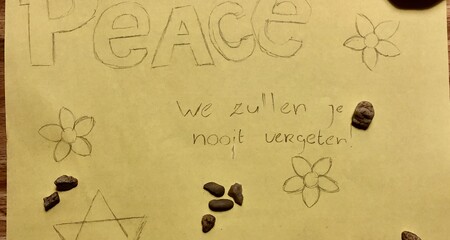 PEACE
We zullen je
nooit vergeten!